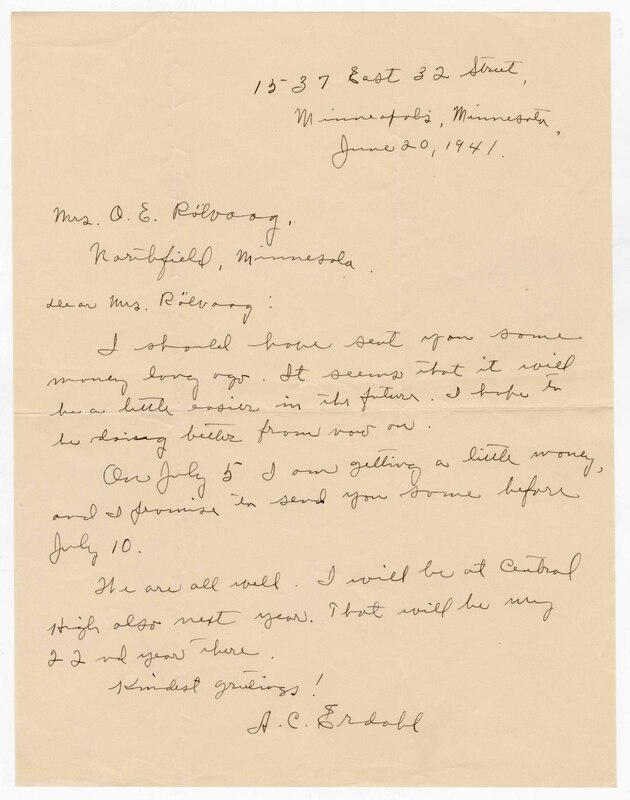 1537 East 32 Street,
Minneapolis, Minnesota,
June 20, 1941.
Mrs. O. E. Rölvaag,
Northfield, Minnesota.
Dear Mrs. Rölvaag:
I should have sent you some
money long ago. It seems that it will
be a little easier in the future. I hope to
be doing better from now on.
On July 5 I am getting a little money,
and I promise to send you some before
July 10.
We are all well. I will be at Central
High also next year. That will be my
22nd year there.
Kindest greetings!
A. C. Erdahl